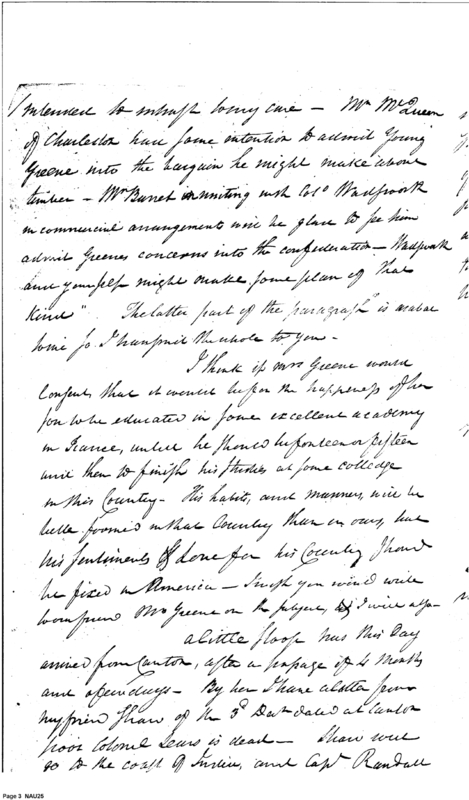 intended to intrust to my care — Mr. McQueen
of Charleston had some intention to admit young
Greene into the bargain he might make about
timber — Mr Barret in uniting with Colo Wadsworth
in commercial arrangements will be glad to see him
admit Greenes concerns into the confederation — Wadsworth
and yourself might make some plan of that
Kind" The latter part of the paragraph is
so I transmit the whole to you —
I think if Mrs Greene would
Consent, that it would be for the happiness of her
son to be educated in some excellent academy
in France, until he should be fourteen or fifteen
and then to finish his studies at some colledge
in this Country — His habits, and manners, will be
better formed in that Country than in ours, but
his sentiments & love for his Country should
be fixed in America — I wish you would write
our friend Mrs Greene on the subject, I will also
a little sloop has this Day
arrived from Canton, after a passage of 4 Months
and a few days — By her I have a letter from
my friend Shaw of the 3d dated at Canton
poor Colonel Sears is dead — Shaw will
go to the coast of India, and Capt Randall
Page 3 NAU25